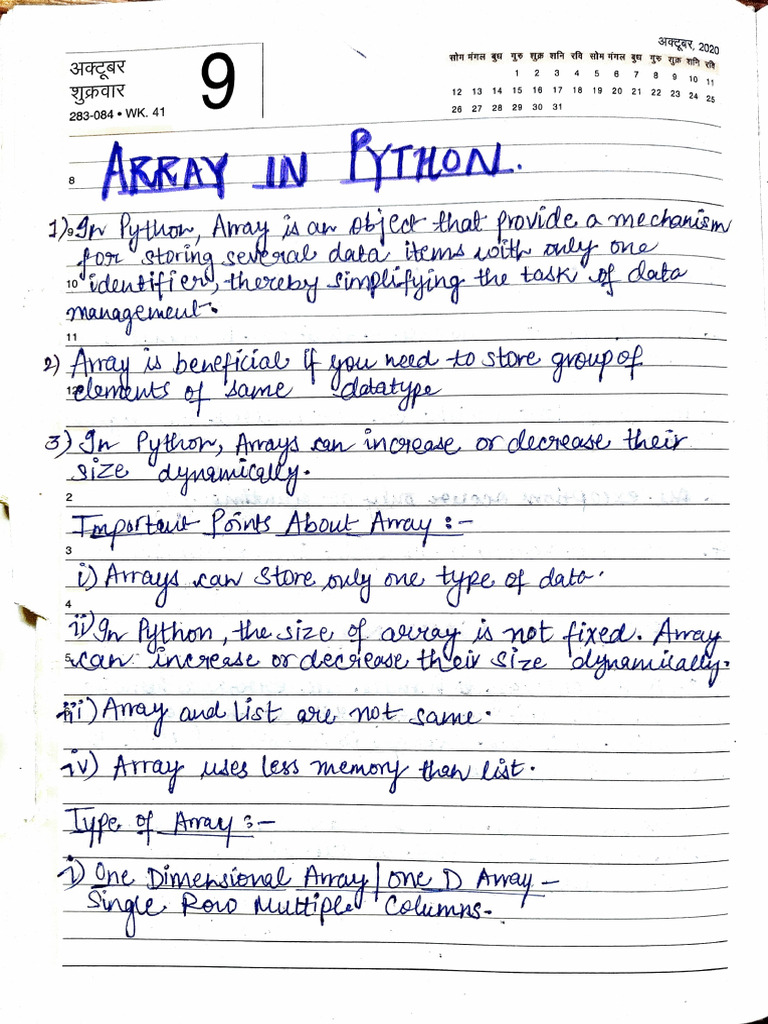 अक्टूबर
शुक्रवार
283-084 • WK. 41
9
अक्टूबर, 2020
सोम मंगल बुध गुरु शुक्र शनि रवि सोम मंगल बुध गुरु शुक्र शनि रवि
1 2 3 4 5 6 7 8 9 10 11
12 13 14 15 16 17 18 19 20 21 22 23 24 25
26 27 28 29 30 31
8
ARRAY IN PYTHON.
9
1) In Python, Array is an object that provide a mechanism
for storing several data items with only one
10
identifier, thereby simplifying the task of data
management.
11
2) Array is beneficial if you need to store group of
12
elements of same datatype
3) In Python, Arrays can increase or decrease their
size dynamically.
2
Important Points About Array :-
3
i) Arrays can store only one type of data.
4
ii) In Python, the size of array is not fixed. Array
5
can increase or decrease their size dynamically.
iii) Array and list are not same.
iv) Array uses less memory than list.
Type of Array :-
i) One Dimensional Array | One D Array -
Single Row Multiple Columns.